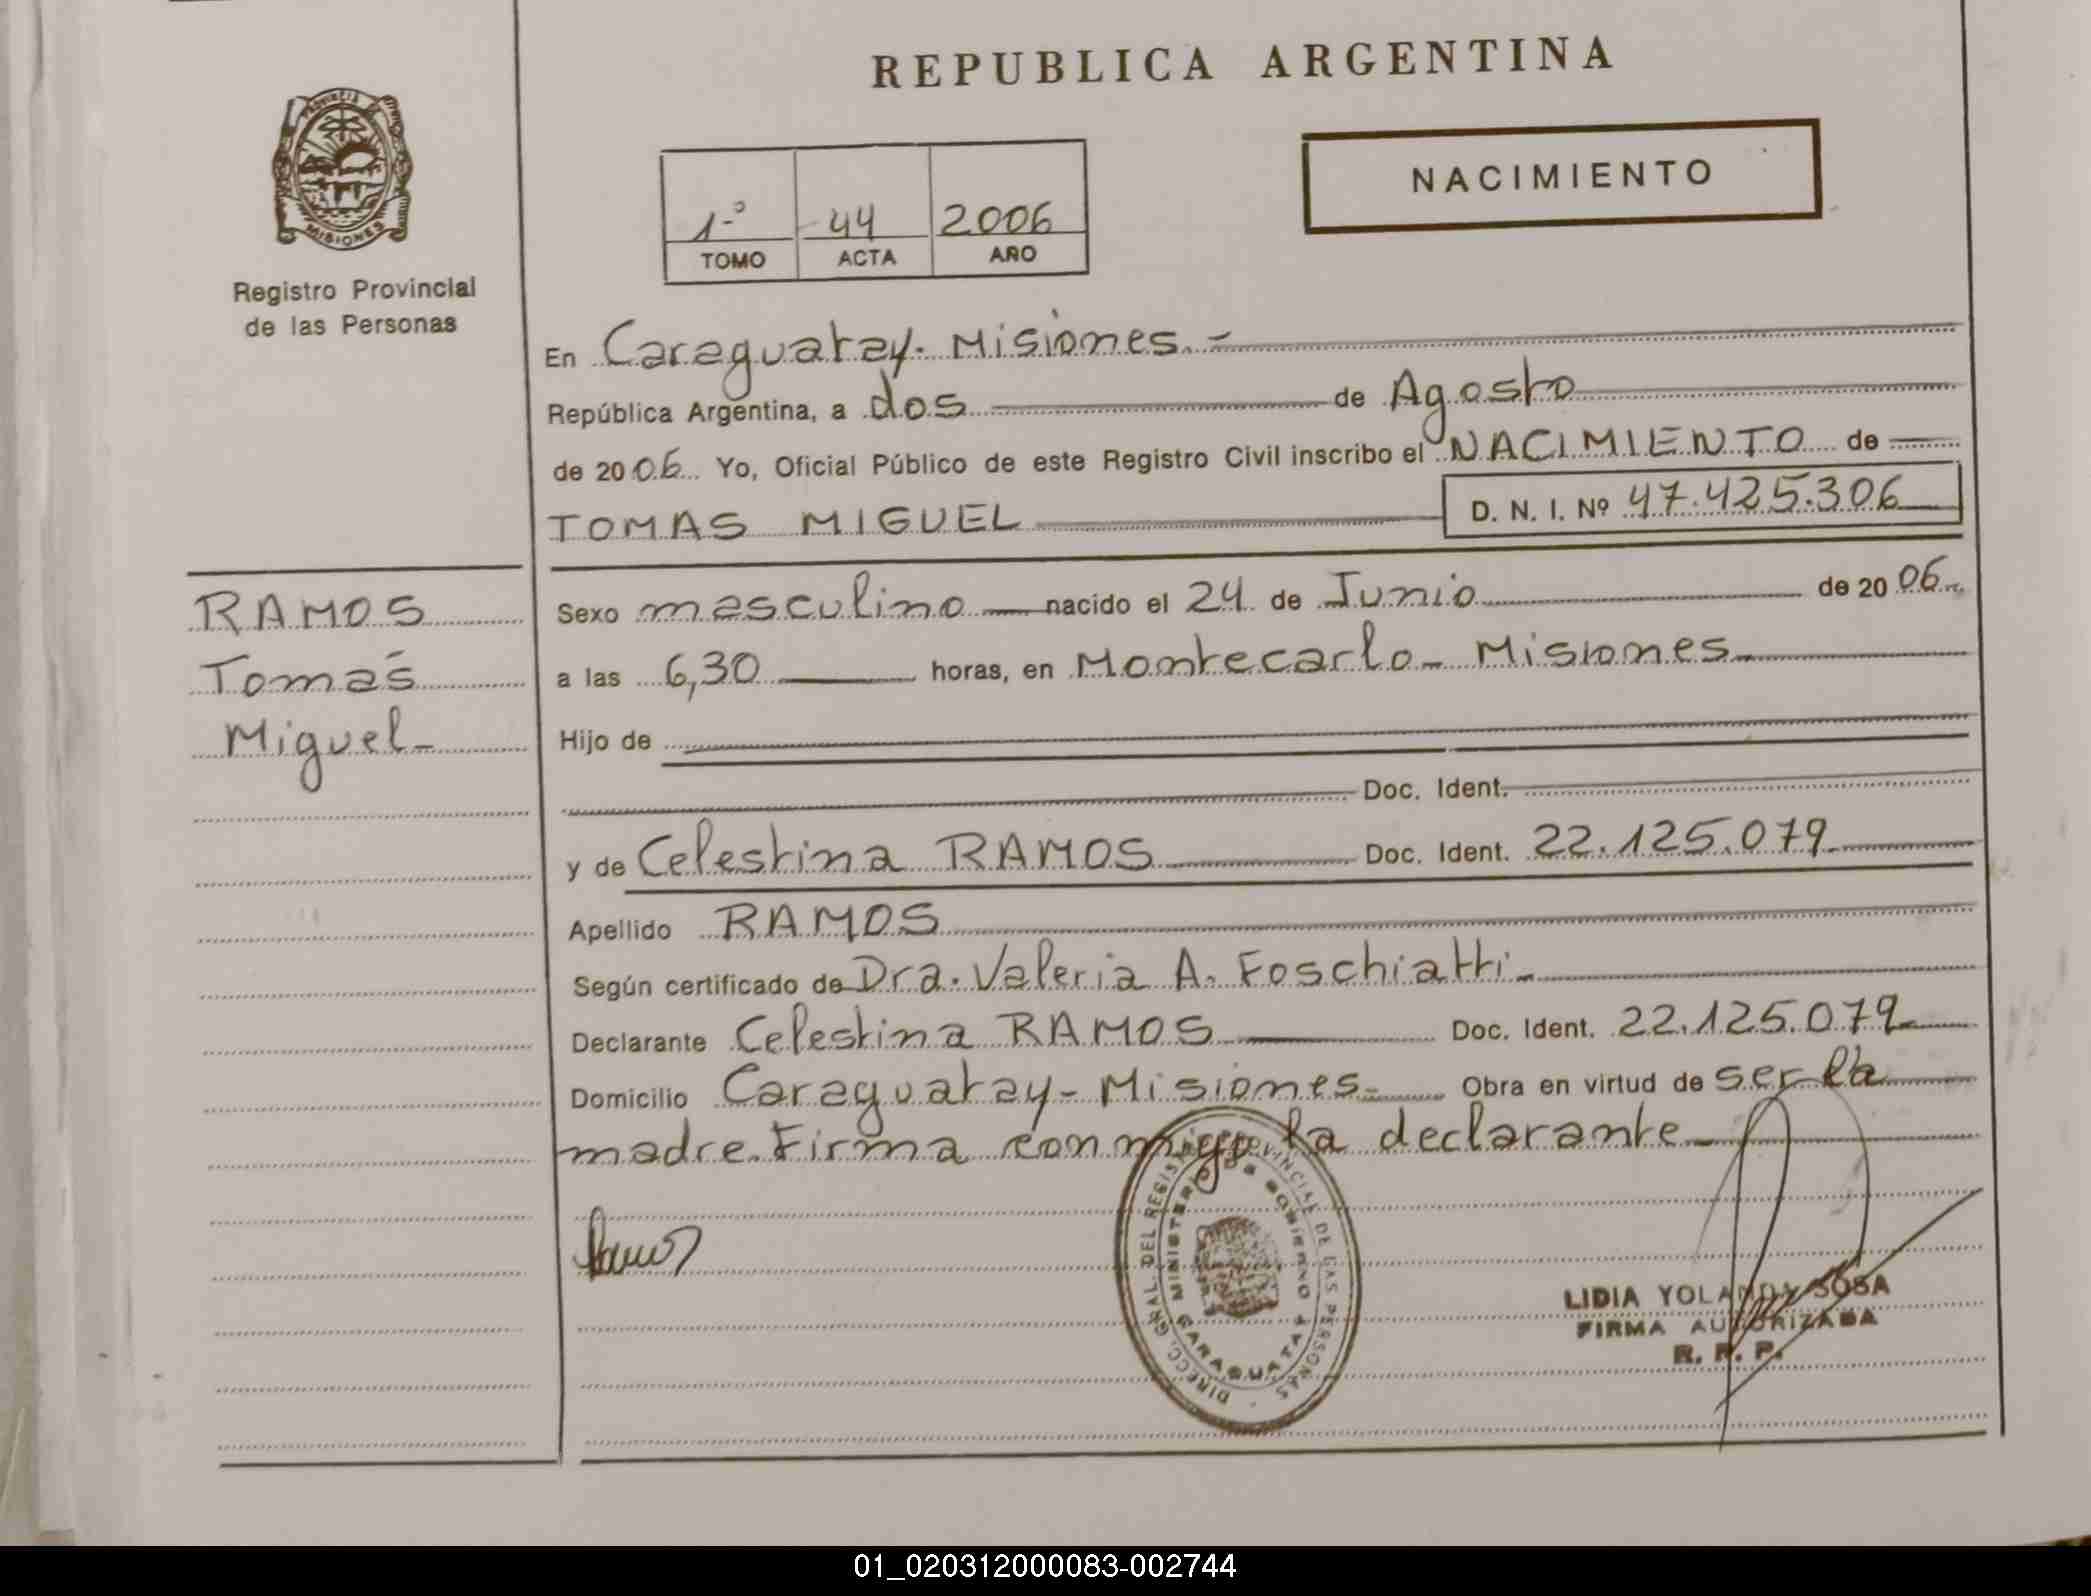 REPUBLICA ARGENTINA
PROVINCIA
MISIONES
Registro Provincial
de las Personas
NACIMIENTO
1º 44 2006
TOMO ACTA AÑO
En Caraguatay. Misiones.-
República Argentina, a dos de Agosto
de 2006 Yo, Oficial Público de este Registro Civil inscribo el NACIMIENTO de
TOMAS MIGUEL D. N. I. Nº 47.425.306
RAMOS
Tomás
Miguel-
Sexo masculino nacido el 24 de Junio de 2006
a las 6,30 horas, en Montecarlo- Misiones-
Hijo de
Doc. Ident.
y de Celestina RAMOS Doc. Ident. 22.125.079-
Apellido RAMOS
Según certificado de Dra. Valeria A. Foschiatti-
Declarante Celestina RAMOS Doc. Ident. 22.125.079-
Domicilio Caraguatay- Misiones- Obra en virtud de ser la
madre. Firma conmigo la declarante-
Ramos
DIRECC. GRAL. DEL REGISTRO PROVINCIAL DE LAS PERSONAS
MINISTERIO DE GOBIERNO
CARAGUATAY
LIDIA YOLANDA SOSA
FIRMA AUTORIZADA
R. P. P.
01_020312000083-002744